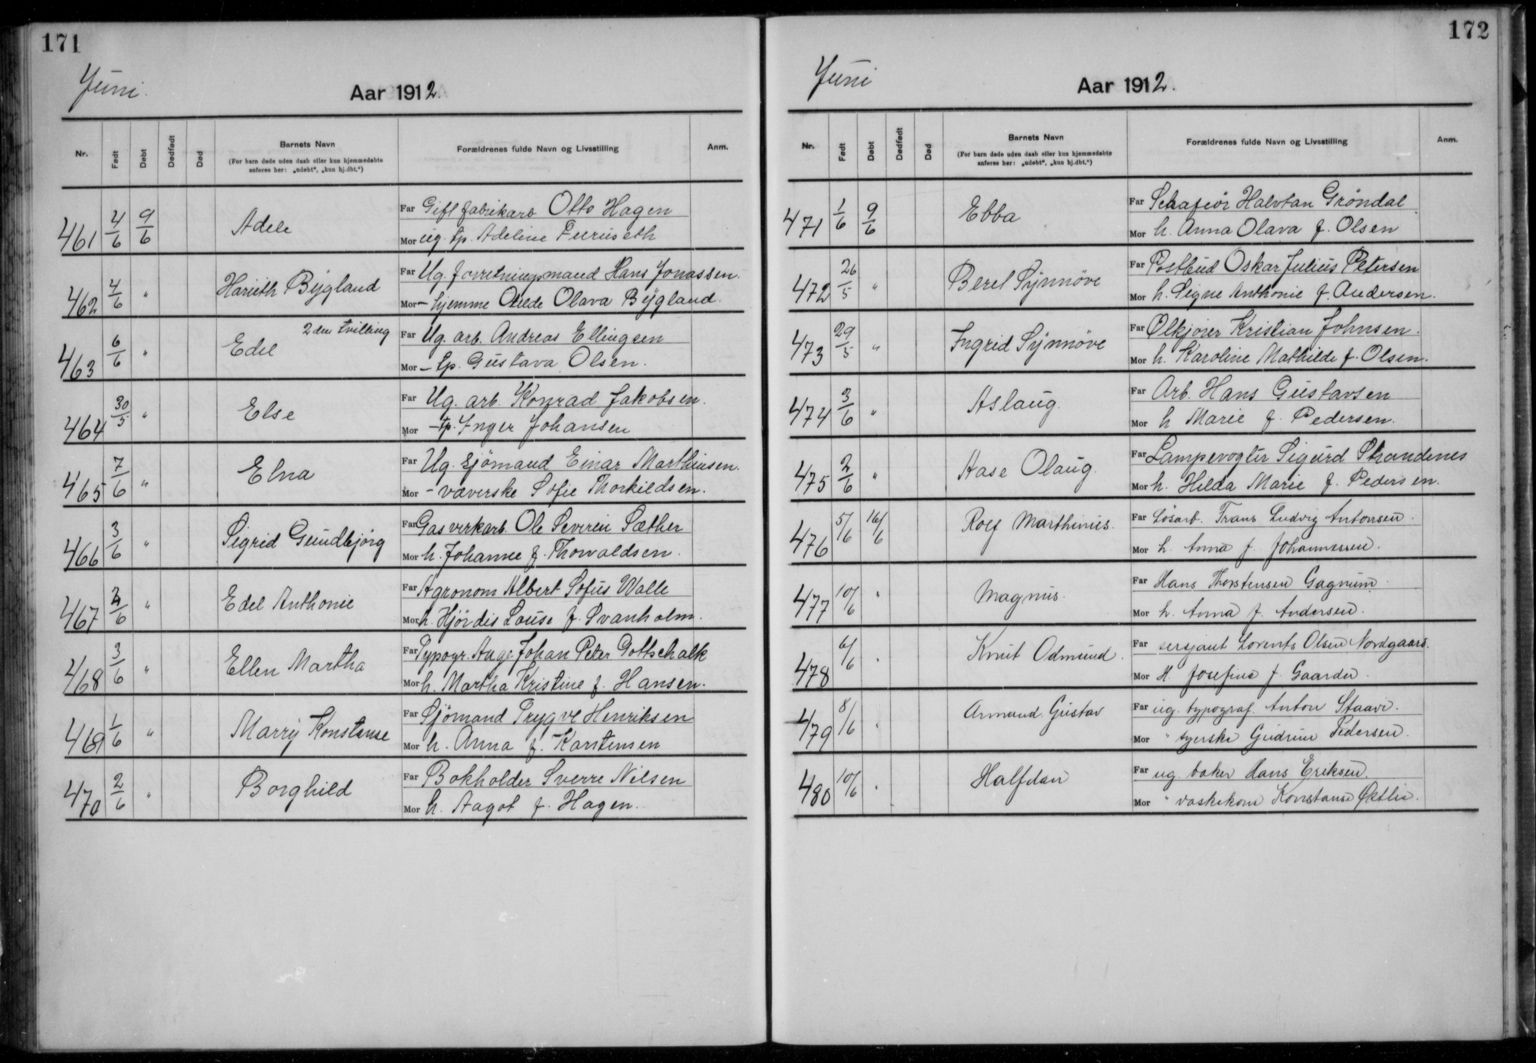 171
Juni.
Aar 1912
Nr.
Født
Døbt
Dødfødt
Død
Barnets Navn
(For barn døde uden daab eller kun hjemmedøbte
anføres her: „udøbt“, „kun hj.dbt.“)
Forældrenes fulde Navn og Livsstilling
Anm.
461 4/6 9/6 Adele
Far Gift fabrikarb Otto Hagen
Mor ug tp. Adeline Furuseth
462 4/6 " Harieth Bÿgland
Far Ug. forretningsmand Hans Jonassen.
Mor – hjemme Olava Bÿgland.
463 6/6 " Edel 2den tvilling
Far Ug. arb. Andreas Ellingsen
Mor – tp. Gustava Olsen.
464 30/5 " Else
Far Ug. arb. Konrad Jakobsen.
Mor – tp. Inger Johansen
465 7/6 " Elna
Far Ug. sjömand Einar Marthinsen.
Mor – væverske Sofie Thorkildsen.
466 3/6 " Sigrid Gundbjörg
Far Gasverkarb Ole Severin Sæther
Mor h. Johanne f. Thorvaldsen.
467 2/6 " Edel Anthonie
Far Agronom Albert Sofus Valle
Mor h. Hjördis Louise f. Svanholm.
468 3/6 " Ellen Martha
Far Typogr. Aage Johan Peter Dottschalk
Mor h. Martha Kristine f. Hansen.
469 1/6 " Marrÿ Konstanse
Far Sjömand Trygve Henriksen
Mor h. Anna f. Karstensen
470 2/6 " Borghild
Far Bokholder Sverre Nilsen
Mor h. Aagot f. Hagen.
172
Juni
Aar 1912.
Nr.
Født
Døbt
Dødfødt
Død
Barnets Navn
(For barn døde uden daab eller kun hjemmedøbte
anføres her: „udøbt“, „kun hj.dbt.“)
Forældrenes fulde Navn og Livsstilling
Anm.
471 1/6 9/6 Ebba
Far Halvtan Gröndal
Mor h. Anna Olava f. Olsen
472 26/5 " Beret Sÿnnöve
Far Postbud Oskar Julius Petersen
Mor h. Signe Anthonie f. Andersen.
473 29/5 " Ingrid Sÿnnöve
Far Ölkjörer Kristian Johnsen.
Mor h. Karoline Mathilde f. Olsen.
474 3/6 " Aslaug
Far Arb. Hans Gustavsen
Mor h Marie f. Pedersen.
475 2/6 " Aase Olaug.
Far Lampevogter Sigurd Strandenes
Mor h. Hilda Marie f. Pedersen.
476 5/6 16/6 Rolf Marthinius.
Far Løsarb. Frans Ludvig Antonsen.
Mor h. Anna f. Johannessen.
477 10/6 " Magnus.
Far Hans Thorstensen Gagnum.
Mor h. Anna f Andersen.
478 6/6 " Knut Odmund.
Far sersjant Lorents Olsen Nordgaard.
Mor H. Josefine f Gaarder.
479 8/6 " Armand Gustav
Far ug. typograf. Anton Staavi.
Mor " syerske Gudrun Pedersen.
480 10/6 " Halfdan
Far ug. baker Hans Eriksen.
Mor " vaskekone Konstanse Østlie.